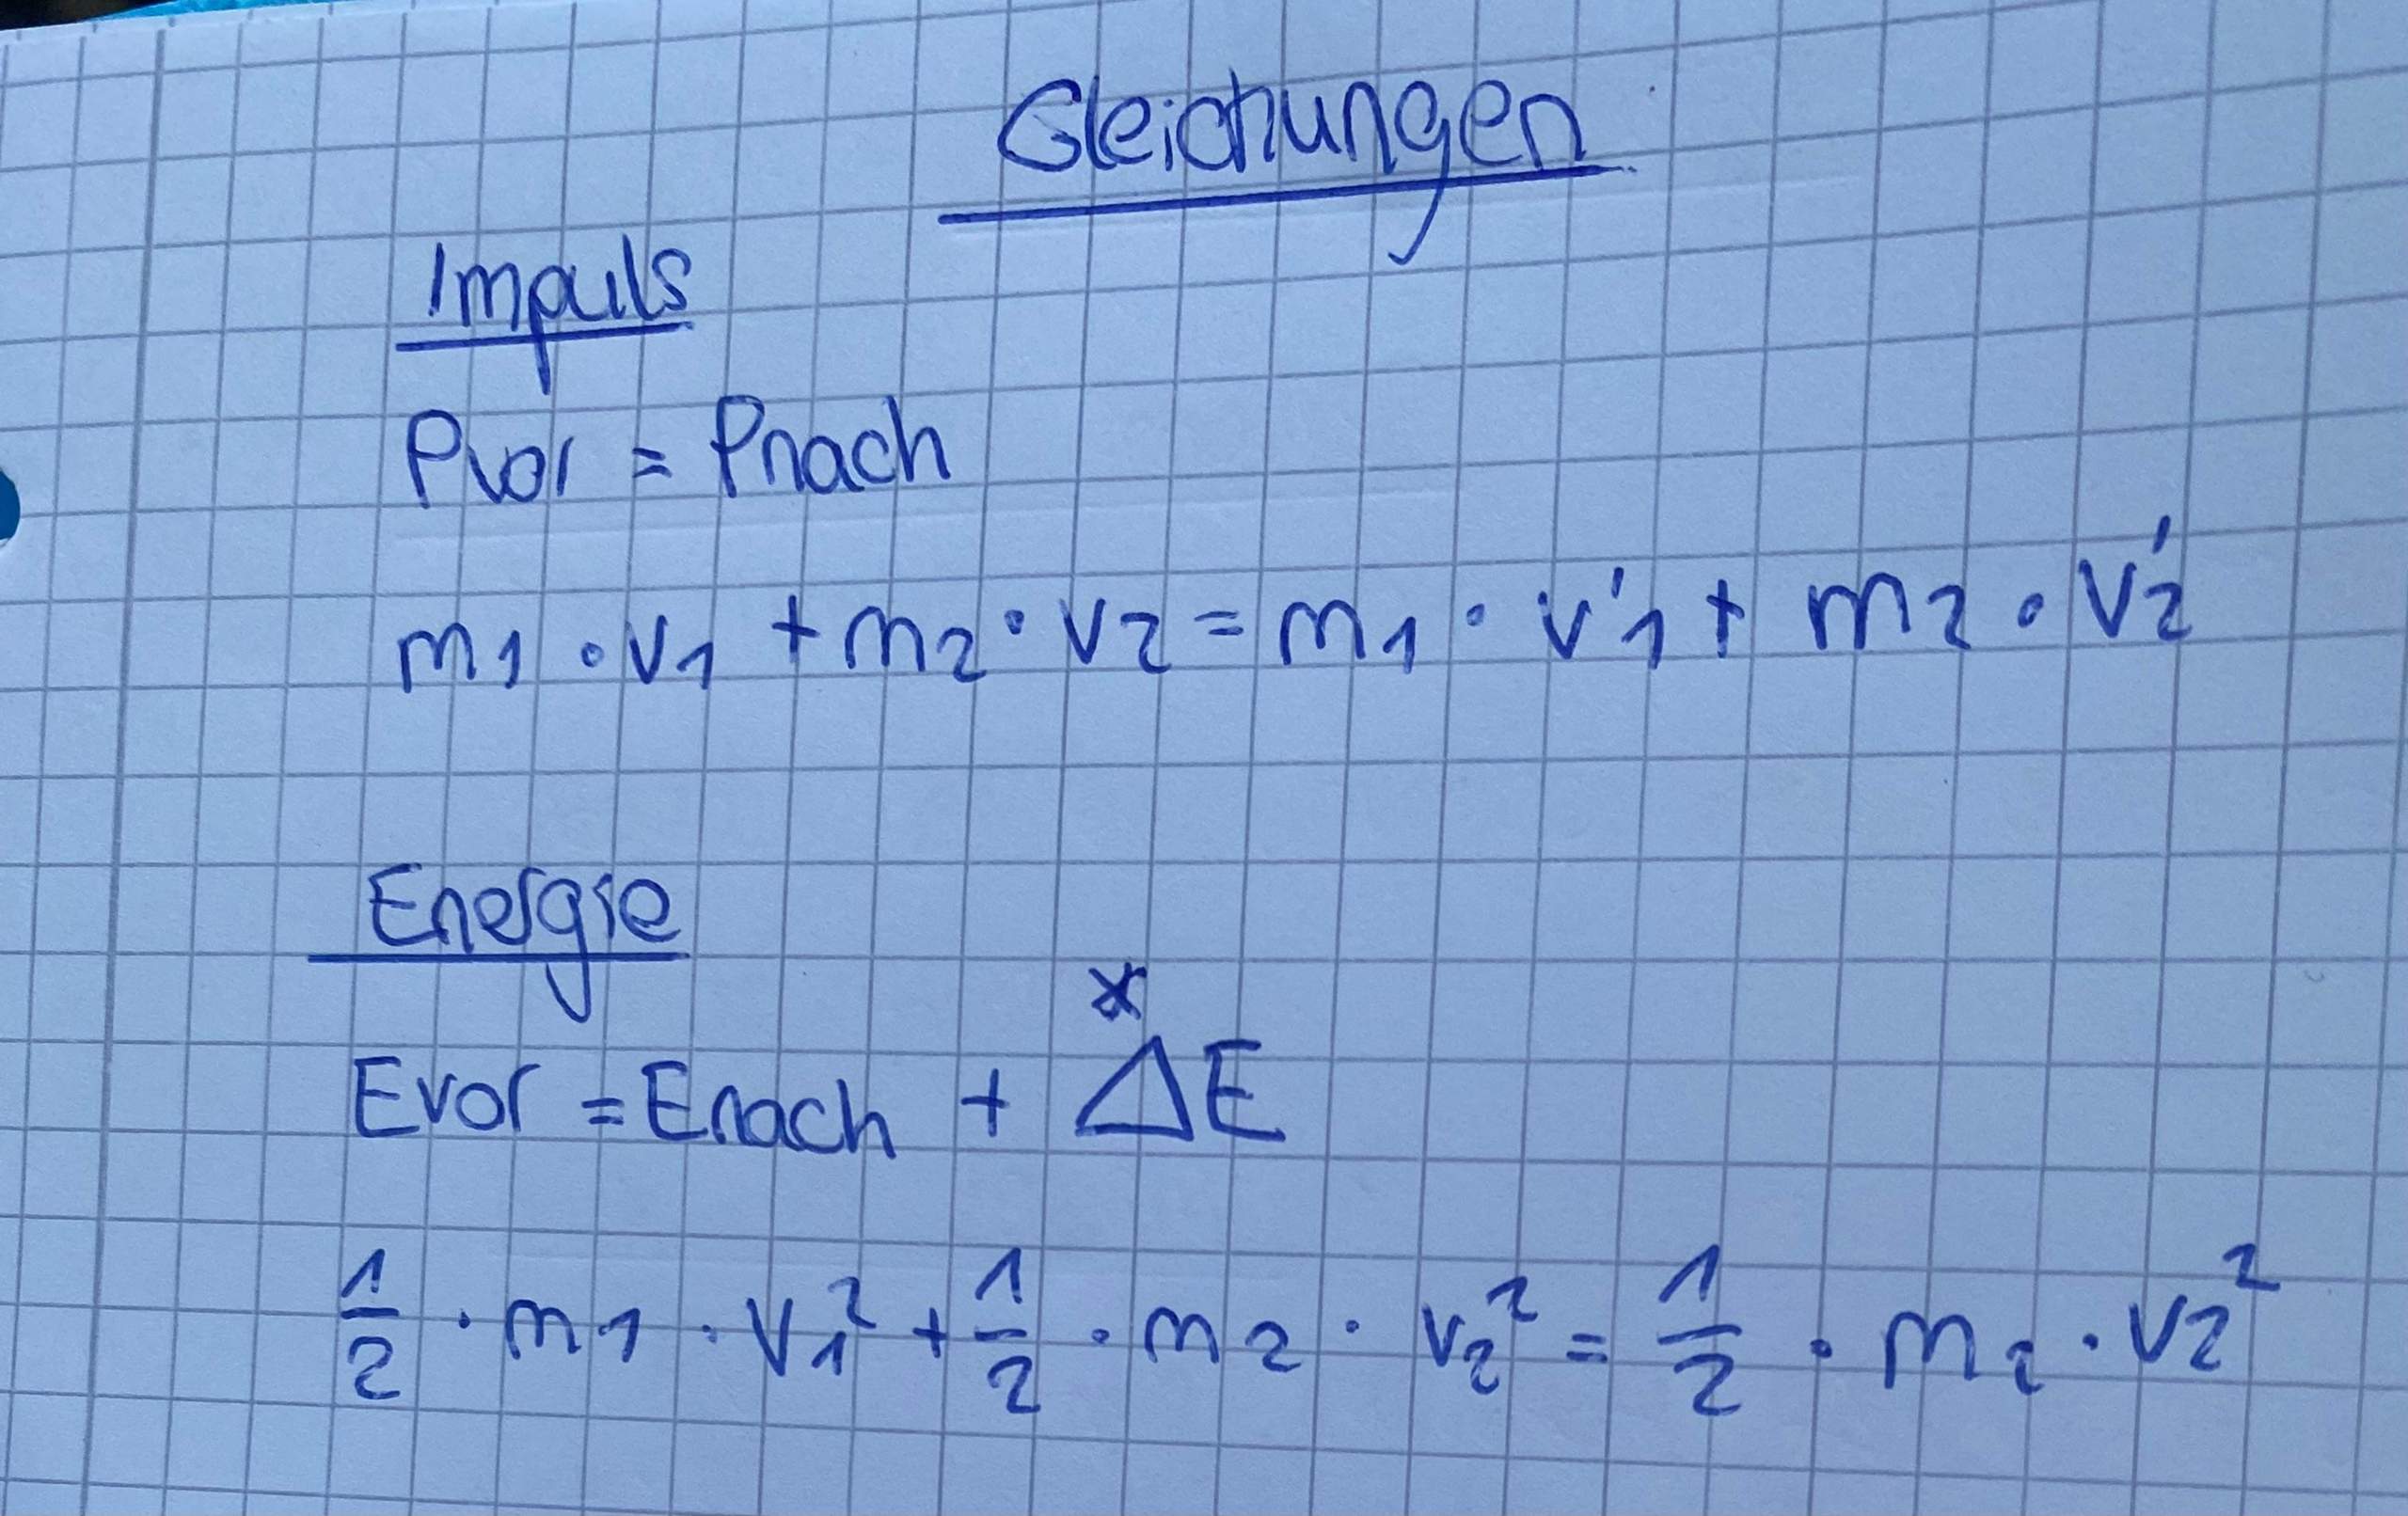 Gleichungen
Impuls
Pvor = Pnach
m₁ · v₁ + m₂ · v₂ = m₁ · v'₁ + m₂ · v'₂
Energie
*
Evor = Enach + ΔE
½ · m₁ · v₁² + ½ · m₂ · v₂² = ½ · m₂ · v₂²